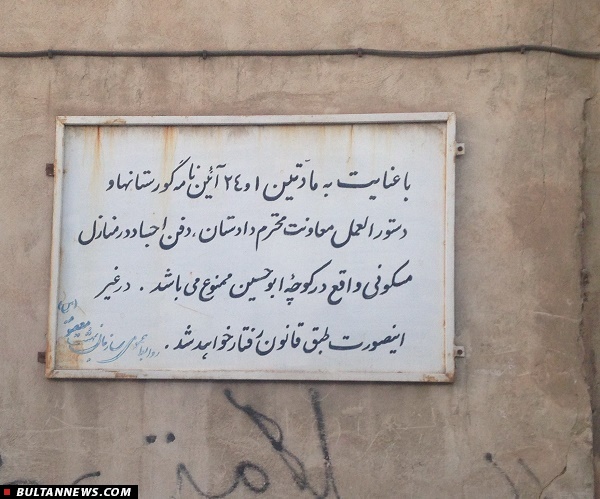 با عنایت به مادّتین ۱ و ۲۴ آئین نامه گورستانها و
دستورالعمل معاونت محترم دادستان، دفن اجساد در منازل
مسکونی واقع در کوچهٔ ابوحسین ممنوع می باشد. در غیر
اینصورت طبق قانون رفتار خواهد شد.
روابط عمومی سازمان بهشت معصومه (س)
BULTANNEWS.COM